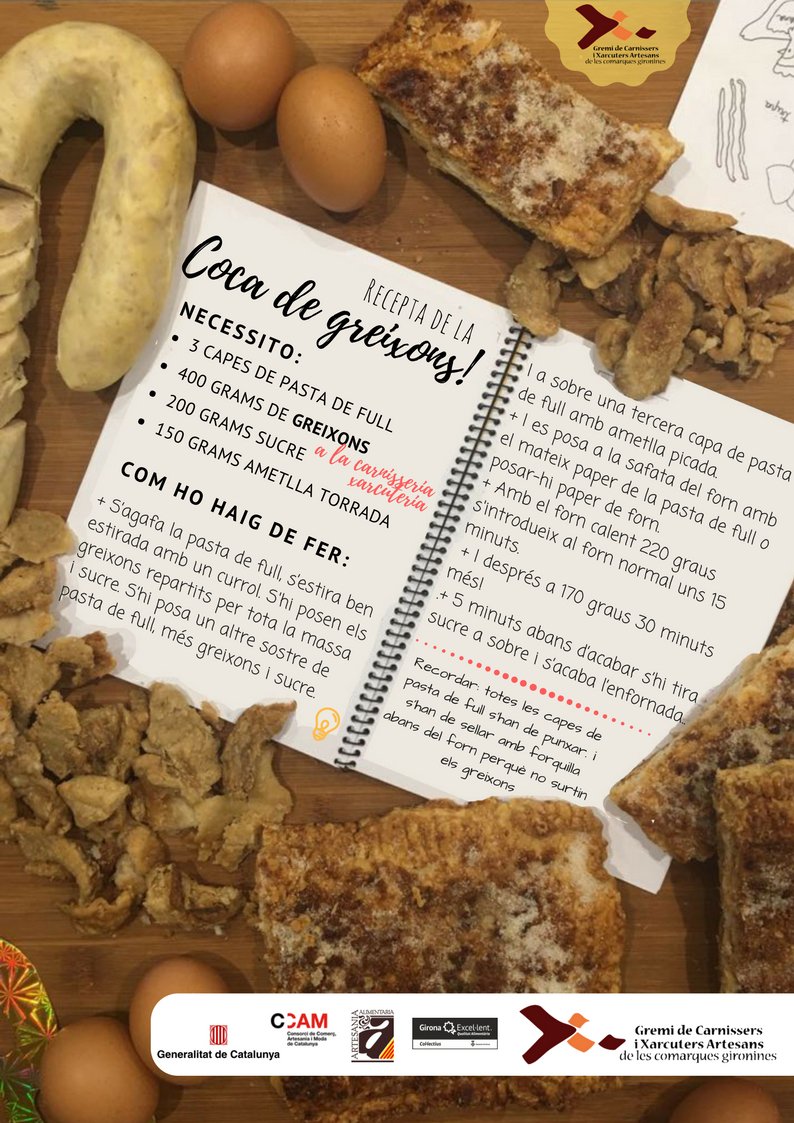 Gremi de Carnissers
i Xarcuters Artesans
de les comarques gironines
RECEPTA DE LA
Coca de greixons!
NECESSITO:
3 CAPES DE PASTA DE FULL
400 GRAMS DE GREIXONS
a la carnisseria
xarcuteria
200 GRAMS SUCRE
150 GRAMS AMETLLA TORRADA
COM HO HAIG DE FER:
+ S'agafa la pasta de full, s'estira ben
estirada amb un currol. S'hi posen els
greixons repartits per tota la massa
i sucre. S'hi posa un altre sostre de
pasta de full, més greixons i sucre.
I a sobre una tercera capa de pasta
de full amb ametlla picada.
+ I es posa a la safata del forn amb
el mateix paper de la pasta de full o
posar-hi paper de forn.
+ Amb el forn calent 220 graus
s'introdueix al forn normal uns 15
minuts.
+ I després a 170 graus 30 minuts
més!
.+ 5 minuts abans d'acabar s'hi tira
sucre a sobre i s'acaba l'enfornada..
Recordar: totes les capes de
pasta de full s'han de punxar: i
s'han de sellar amb forquilla
abans del forn perquè no surtin
els greixons
Generalitat de Catalunya
CCAM
Consorci de Comerç,
Artesania i Moda
de Catalunya
ARTESANIA
ALIMENTARIA
Girona Excel·lent.
Qualitat Alimentària
Col·lectius
Gremi de Carnissers
i Xarcuters Artesans
de les comarques gironines